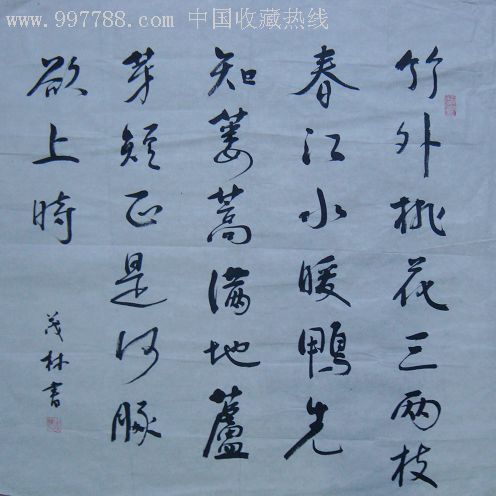 www.997788.com 中国收藏热线
竹外桃花三两枝
春江水暖鴨先
知蔞蒿满地蘆
芽短正是河豚
欲上時
茂林書